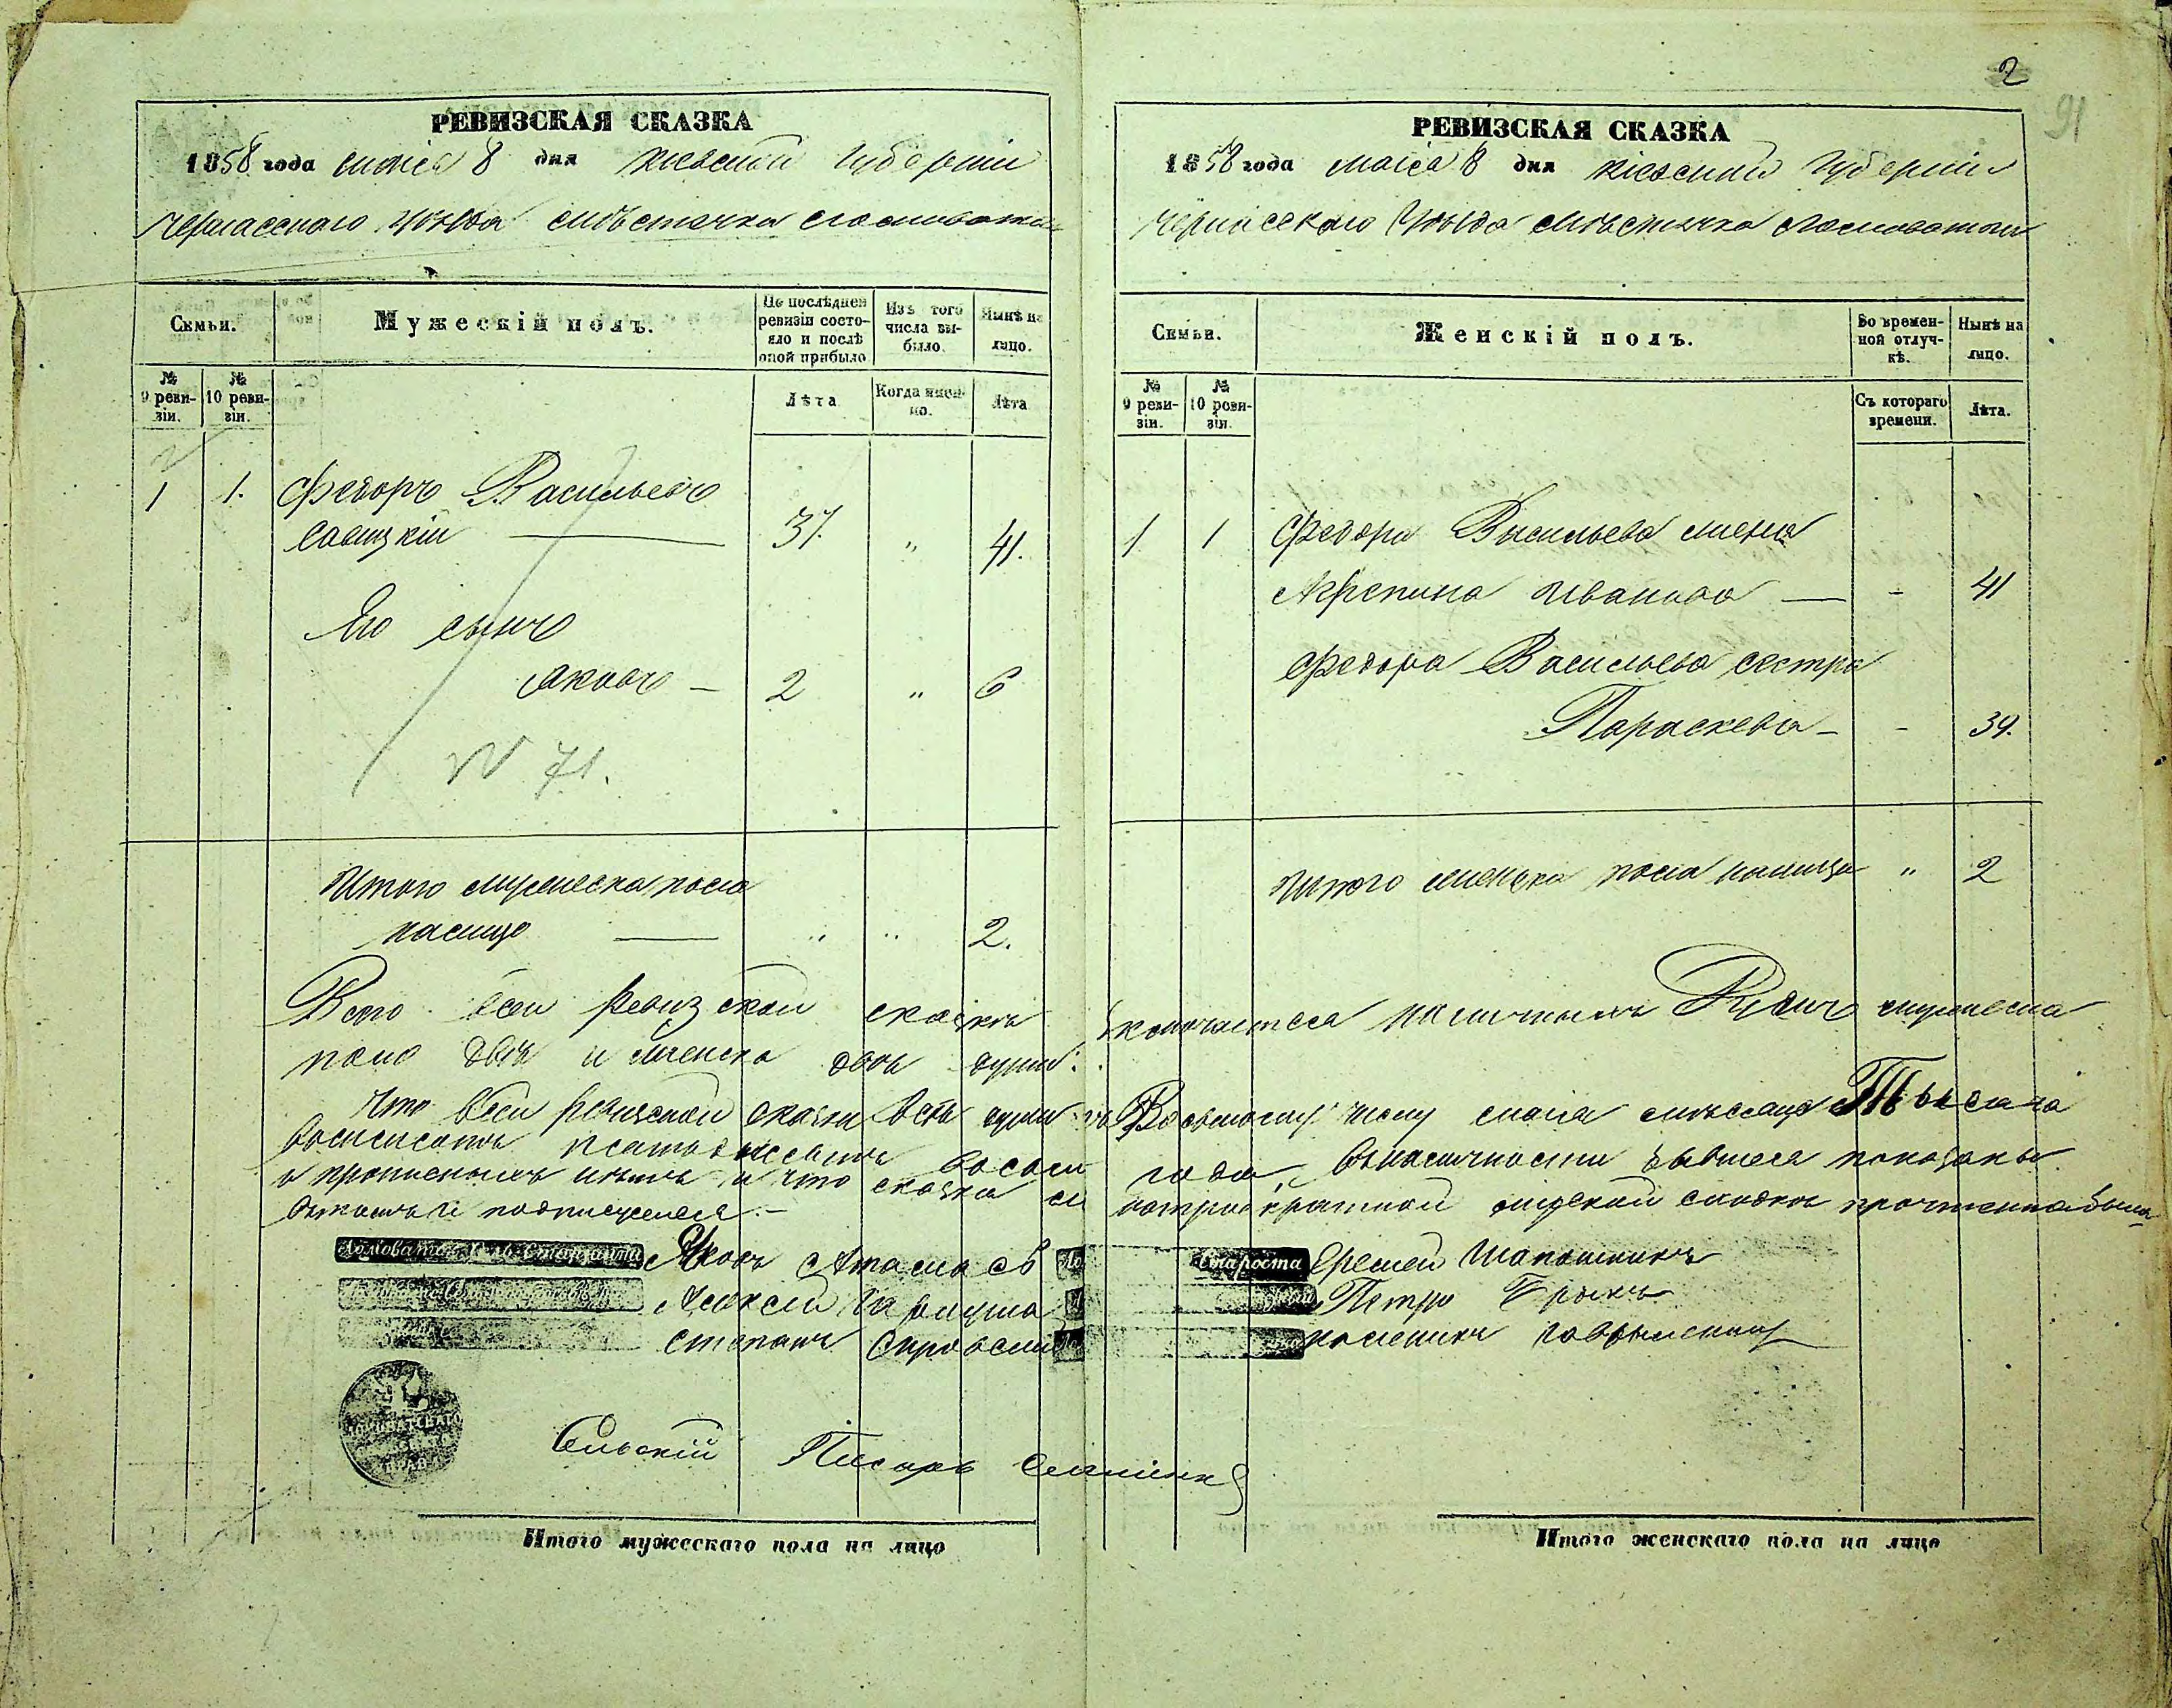 2
91
РЕВИЗСКАЯ СКАЗКА
1858 года маія 8 дня Кіевской Губерніи
Черкасскаго уѣзда мѣстечка Ломоватого
Семьи.
Мужескій полъ.
По послѣдней ревизіи состояло и послѣ оной прибыло
Изъ того числа выбыло.
Нынѣ на лицо.
№ 9 ревизіи.
№ 10 ревизіи.
Лѣта
Когда именно.
Лѣта
1 1. Федоръ Васильевъ
Савицкій 37. " 41.
Его сынъ
Яковъ 2 " 6
N 71.
Итого мужеска пола
налицо " " 2.
РЕВИЗСКАЯ СКАЗКА
1858 года маія 8 дня Кіевской Губерніи
Черкасскаго Уѣзда мѣстечка Ломоватого
Семьи.
Женскій полъ.
Во временной отлучкѣ.
Нынѣ на лицо.
№ 9 ревизіи.
№ 10 ревизіи.
Съ котораго времени.
Лѣта.
1 1 Федора Васильева жена
Агрепина Иванова — - 41
Федора Васильева сестра
Параскева - - 39.
Итого женска пола налицо " 2
Всего въ сей ревизской сказкѣ заключается наличныхъ Душъ мужеска
пола двѣ и женска двѣ души.
Что въ сей ревизской сказки всѣ души по Восьмому числу маія мѣсяца Тысяча
восемсотъ пятьдесятъ восьмаго года, въ наличности бывшія показаны
и прописныхъ нѣтъ и что сказка сія натрикратной мирской сходкѣ прочтенна была
въ томъ и подписуемся.-
Ломоват Старшина Яковъ Атамасъ
Староста Еремей Шапошникъ
Алексей
Петро
Степанъ
Сельскій Писарь
Итого мужескаго пола на лицо
Итого женскаго пола на лицо